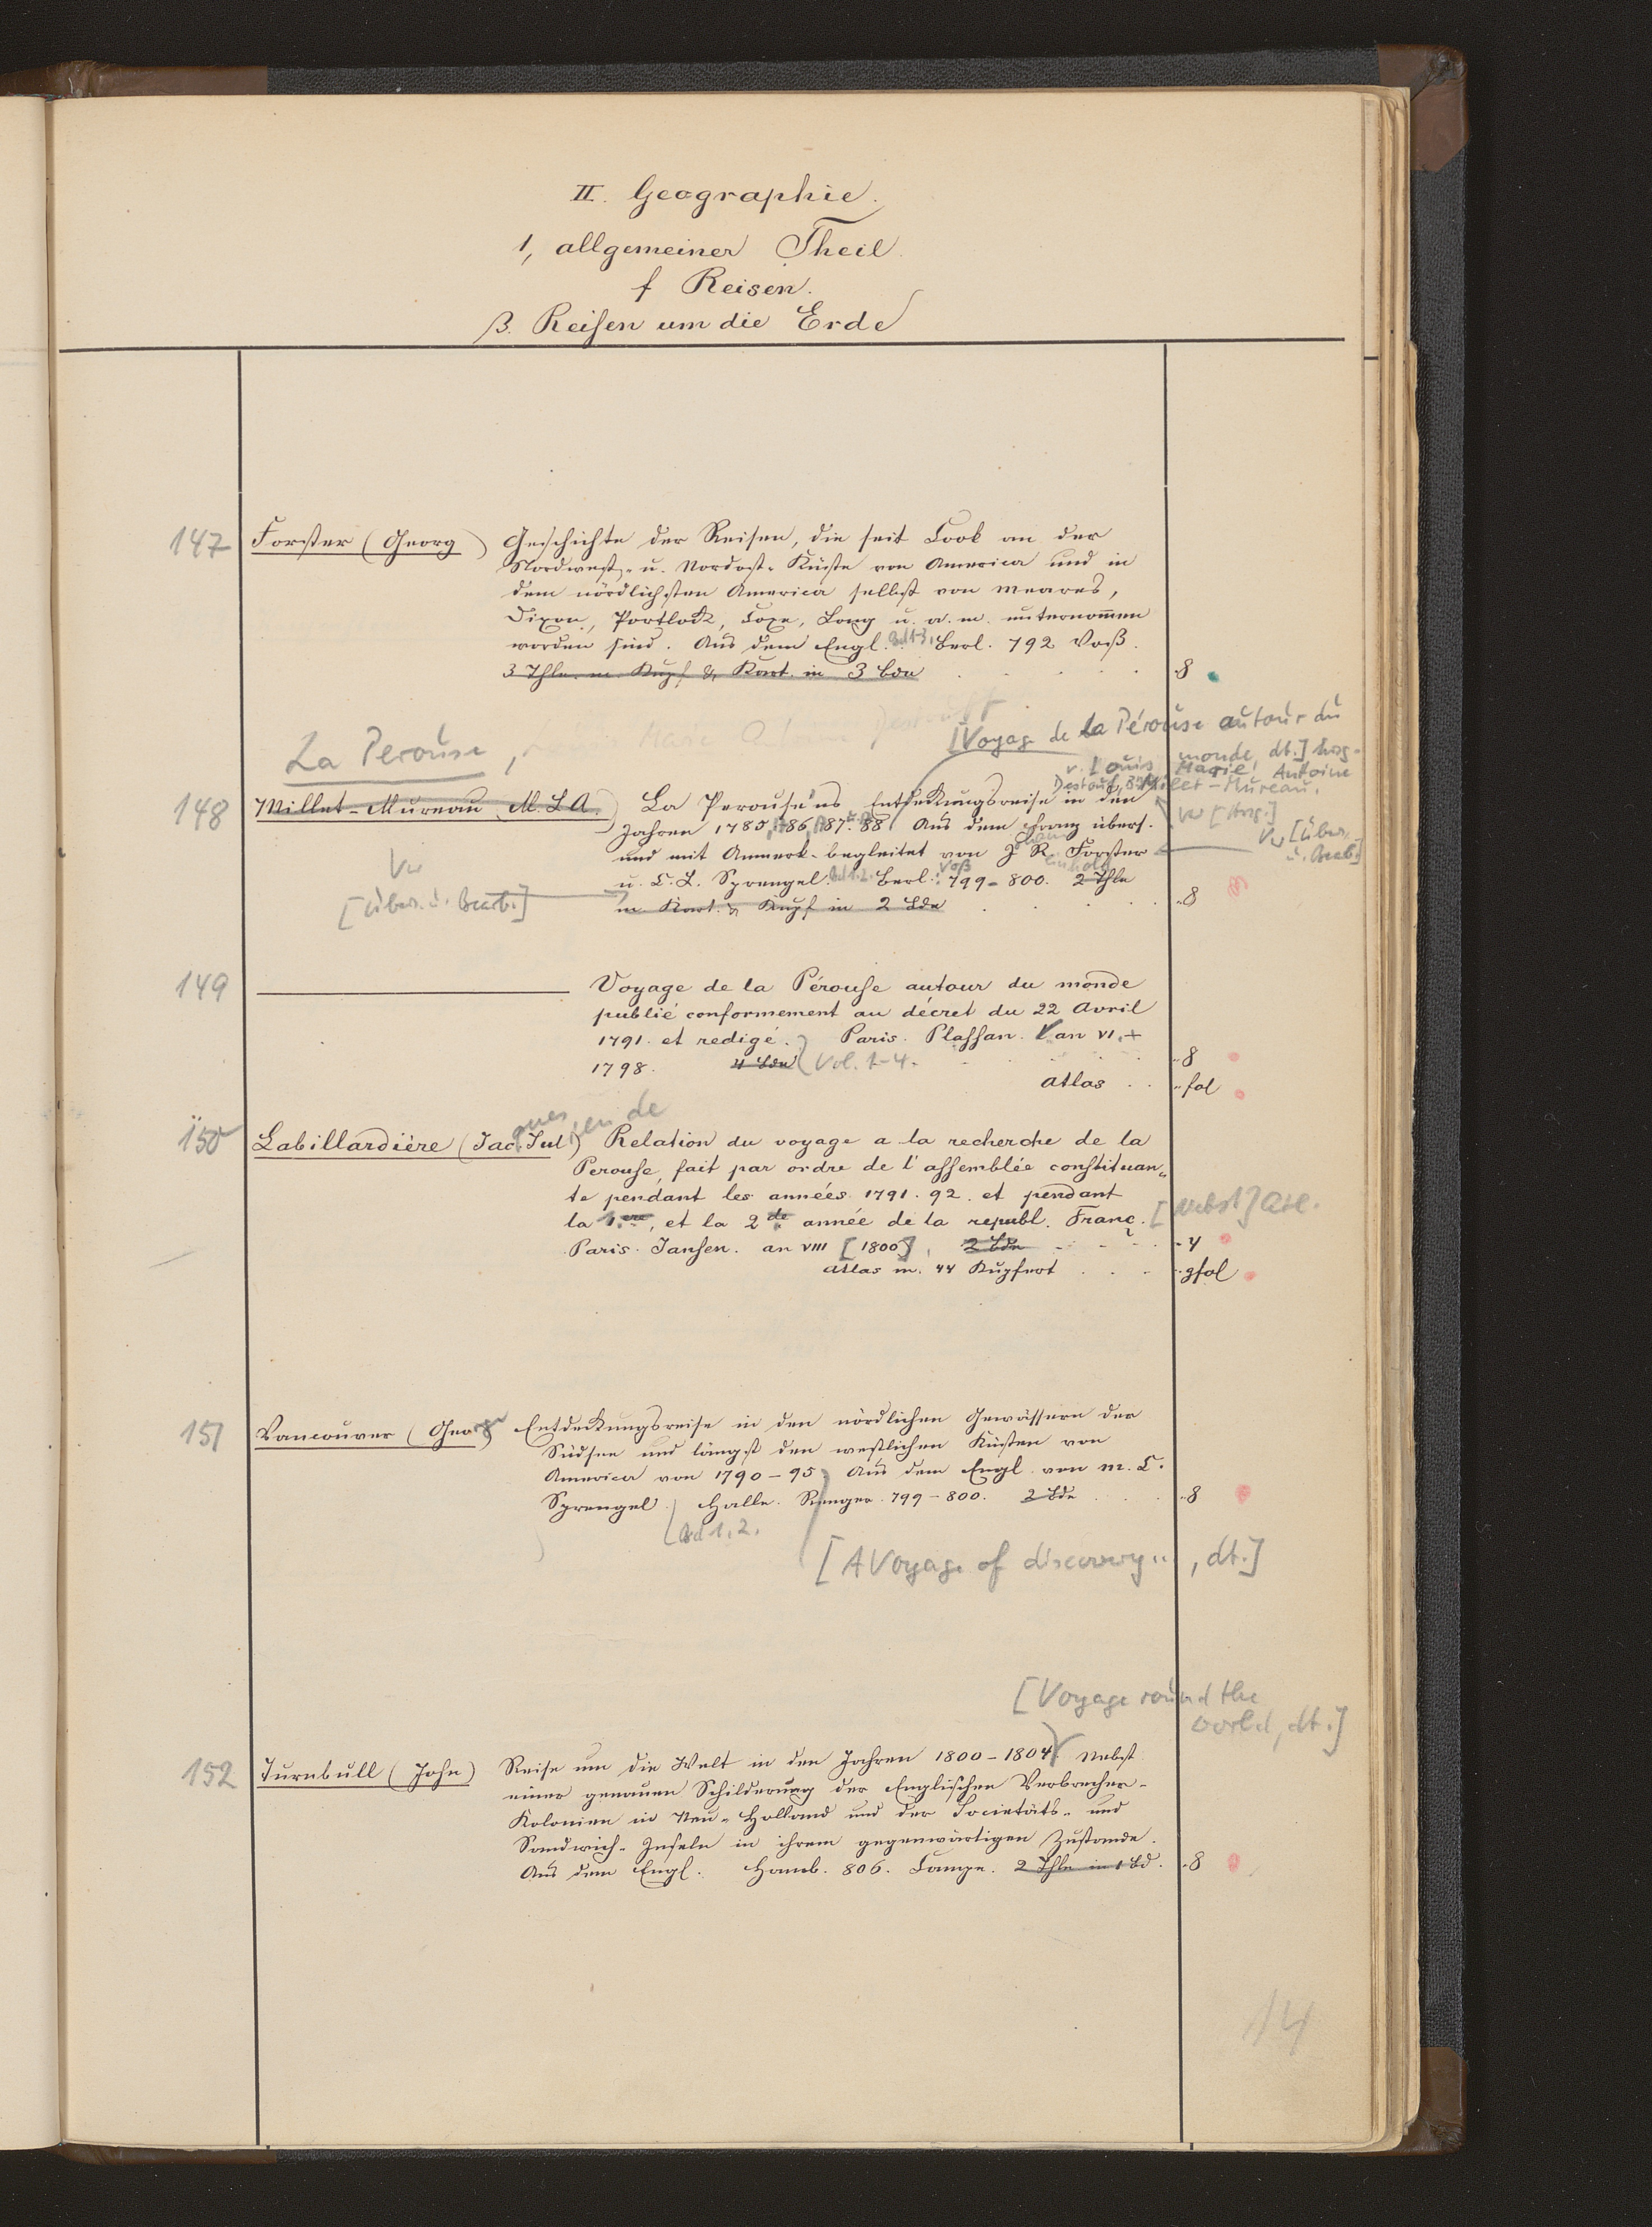 II. Geographie.
1, allgemeiner Theil.
f Reisen.
β. Reisen um die Erde
147 Forster (Georg) Geschichte der Reisen, die seit Cook an der
Nordwest- u. Nordost-Küste von America und in
dem nördlichsten America selbst von Meares,
Dixon, Portlock, Coxe, Long u. a. m. unternommen
worden sind. Aus dem Engl. Bd 1-3. Berl. 792 Voß.
3 Thle. m. Kupf. & Kart. in 3 Bdn 8
[Voyage de la Pérouse autour du
monde, dt.] hrsg.
v. Louis Marie Antoine
Destouf, Millet-Mureau.
La Perouse,
148 Millet-Mureau M. L. A. La Perouse'ns Entdeckungsreise in den
Vw [Hrsg.]
Jahren 1785, 1786, 1787 88 Aus dem Franz übers.
Vw [Übers.
u. Bearb.]
und mit Anmerk. begleitet von J. R. Forster
Vw
[Übers. u. Bearb.]
u. C. L. Sprengel. Bd 1.2. Berl. Voß 799-800. 2 Thle
m. Kart. & Kupf in 2 Bdn 8
149 Voyage de la Pérouse autour du monde
publié conformement au décret du 22 Avril
1791. et redigé. Paris. Plassan. an VI.
1798. 4 Bdn Vol. 1-4. 8
Atlas fol
150 Labillardière (Jacques Julien de) Relation du voyage a la recherche de la
Perouse, fait par ordre de l'assemblée constituan-
te pendant les années 1791. 92. et pendant
la 1.ere, et la 2.de année de la republ. Franç. [nebst] Atl.
Paris. Jansen. an VIII [1800], 2 Bdn 4
Atlas m. 44 Kupfert gfol
151 Vancouver (George) Entdeckungsreise in den nördlichen Gewässern der
Südsee und längst den westlichen Küsten von
America von 1790-95. Aus dem Engl. von M. C.
Sprengel. Halle. Renger. 799-800. 2 Bde 8
Bd 1. 2.
[A Voyage of discovery .. , dt.]
[Voyage round the
world, dt.]
152 Turnbull (John) Reise um die Welt in den Jahren 1800-1804. Nebst
einer genauen Schilderung der Englischen Verbrecher-
Kolonien in Neu-Holland und der Societäts- und
Sandwich-Inseln in ihrem gegenwärtigen Zustande.
Aus dem Engl. Hamb. 806. Campe. 2 Thle in 1 Bd. 8
14